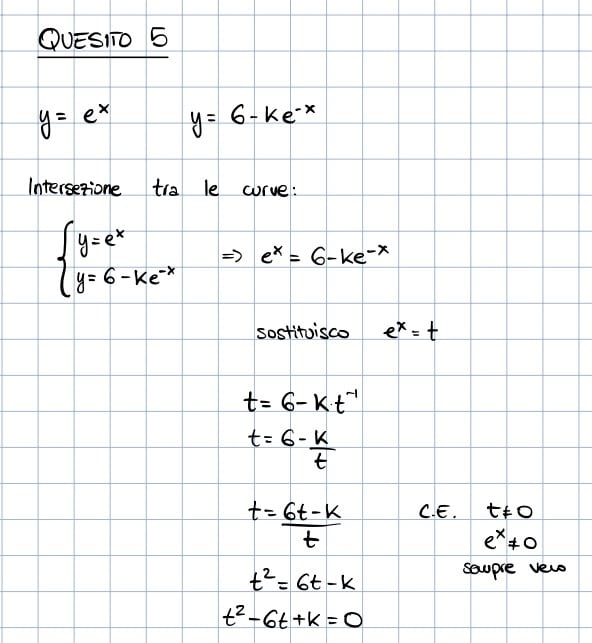 QUESITO 5
y = eˣ y = 6 - ke⁻ˣ
Intersezione tra le curve:
{ y = eˣ
{ y = 6 - ke⁻ˣ => eˣ = 6 - ke⁻ˣ
sostituisco eˣ = t
t = 6 - k·t⁻¹
t = 6 - k/t
t = (6t - k)/t C.E. t ≠ 0
eˣ ≠ 0
sempre vero
t² = 6t - k
t² - 6t + k = 0